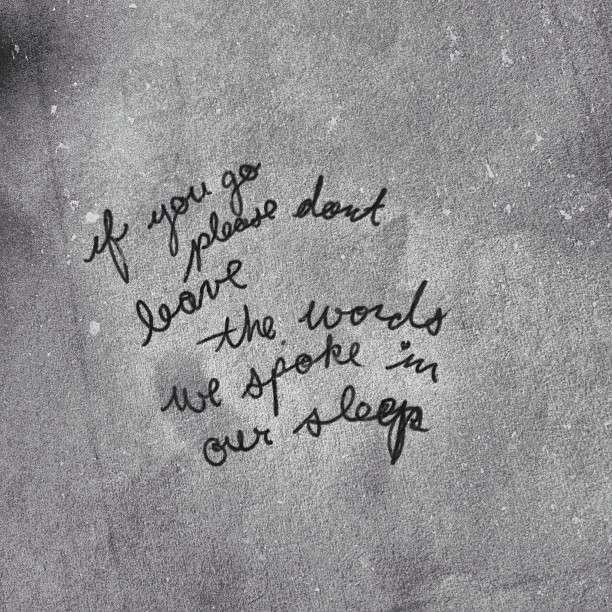 if you go
please dont
leave
the words
we spoke in
our sleep